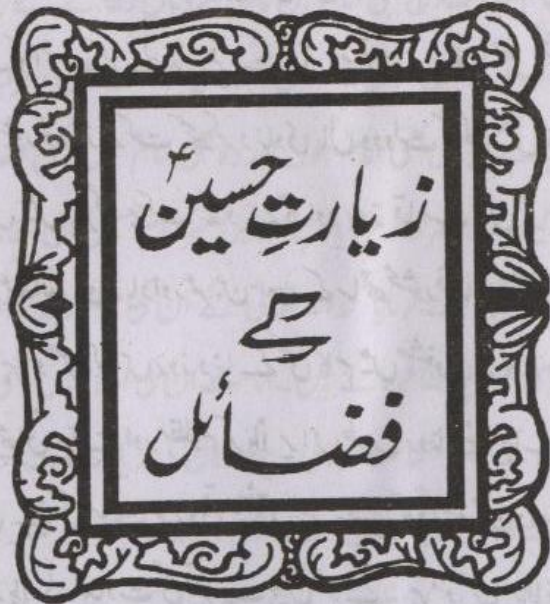 زیارتِ حسینؑ
کے
فضائل